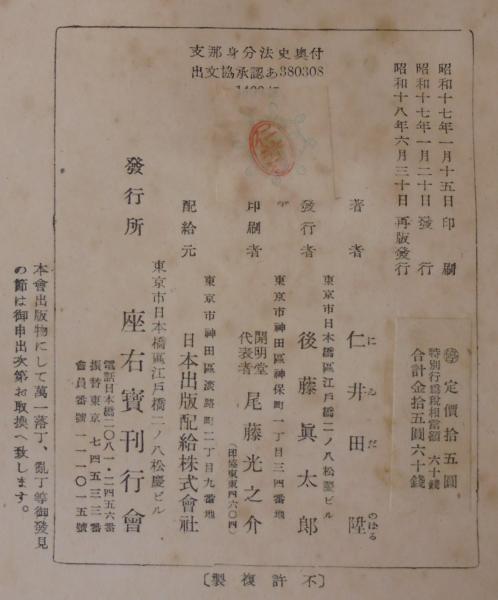 支那身分法史奧付
出文協承認あ380308
昭和十七年一月十五日印刷
昭和十七年一月二十日發行
昭和十八年六月三十日再版發行
㊕ 定價拾五圓
特別行爲税相當額 六十錢
合計金拾五圓六十錢
著者 仁井田陞
にゐだ のぼる
東京市日本橋區江戸橋二ノ八松慶ビル
發行者 後藤眞太郎
東京市神田區神保町一丁目三四番地
印刷者 開明堂代表者 尾藤光之介
(印協東東四六〇四)
東京市神田區淡路町二丁目九番地
配給元 日本出版配給株式會社
東京市日本橋區江戸橋二ノ八松慶ビル
發行所 座右寶刊行會
電話日本橋二〇八一・二四五六番
振替東京 七四五三三番
會員番號 一一一〇一五號
本會出版物にして萬一落丁、亂丁等御發見
の節は御申出次第お取換へ致します。
〔不許複製〕